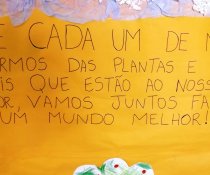 E CADA UM DE N
RMOS DAS PLANTAS E
IS QUE ESTÃO AO NOSS
OR, VAMOS JUNTOS FA
UM MUNDO MELHOR!